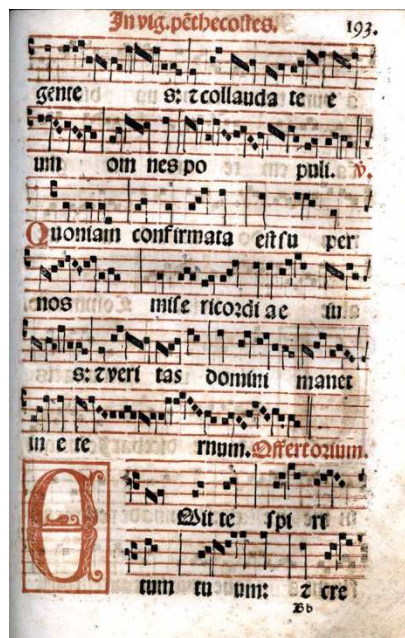 In vig. pēthecostes. 193.
gente s: ⁊ collauda te e
um om nes po puli. ℣.
Quoniam confirmata est su per
nos mise ricordi ae iu
s: ⁊ veri tas domini manet
in e te rnum. Offertorium.
EMit te spi ri
tum tu um: ⁊ cre
Bb